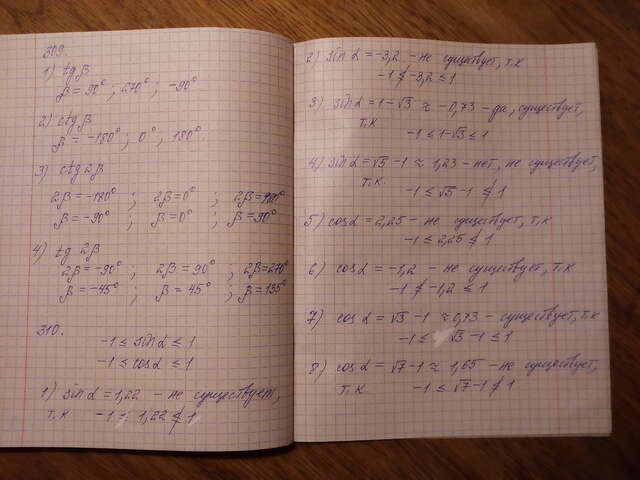 309.
1) tg β
β = 90° ; 270° ; -90°
2) ctg β
β = -180° ; 0° ; 180°.
3) ctg 2β
2β = -180° ; 2β = 0° ; 2β = 180°
β = -90° ; β = 0° ; β = 90°
4) tg 2β
2β = -90° ; 2β = 90° ; 2β = 270°
β = -45° ; β = 45° ; β = 135°
310.
-1 ≤ sin α ≤ 1
-1 ≤ cos α ≤ 1
1) sin α = 1,22 - не существует,
т.к -1 ≤ 1,22 ≰ 1
2) sin α = -3,2 - не существует, т.к
-1 ≰ -3,2 ≤ 1
3) sin α = 1 - √3 ≈ -0,73 - да, существует,
т.к
-1 ≤ 1-√3 ≤ 1
4) sin α = √5 - 1 ≈ 1,23 - нет, не существует,
т.к.
-1 ≤ √5 - 1 ≰ 1
5) cos α = 2,25 - не существует, т.к
-1 ≤ 2,25 ≰ 1
6) cos α = -1,2 - не существует, т.к
-1 ≰ -1,2 ≤ 1
7) cos α = √3 - 1 ≈ 0,73 - существует, т.к
-1 ≤ √3 - 1 ≤ 1
8) cos α = √7 - 1 ≈ 1,65 - не существует,
т.к -1 ≤ √7 - 1 ≰ 1